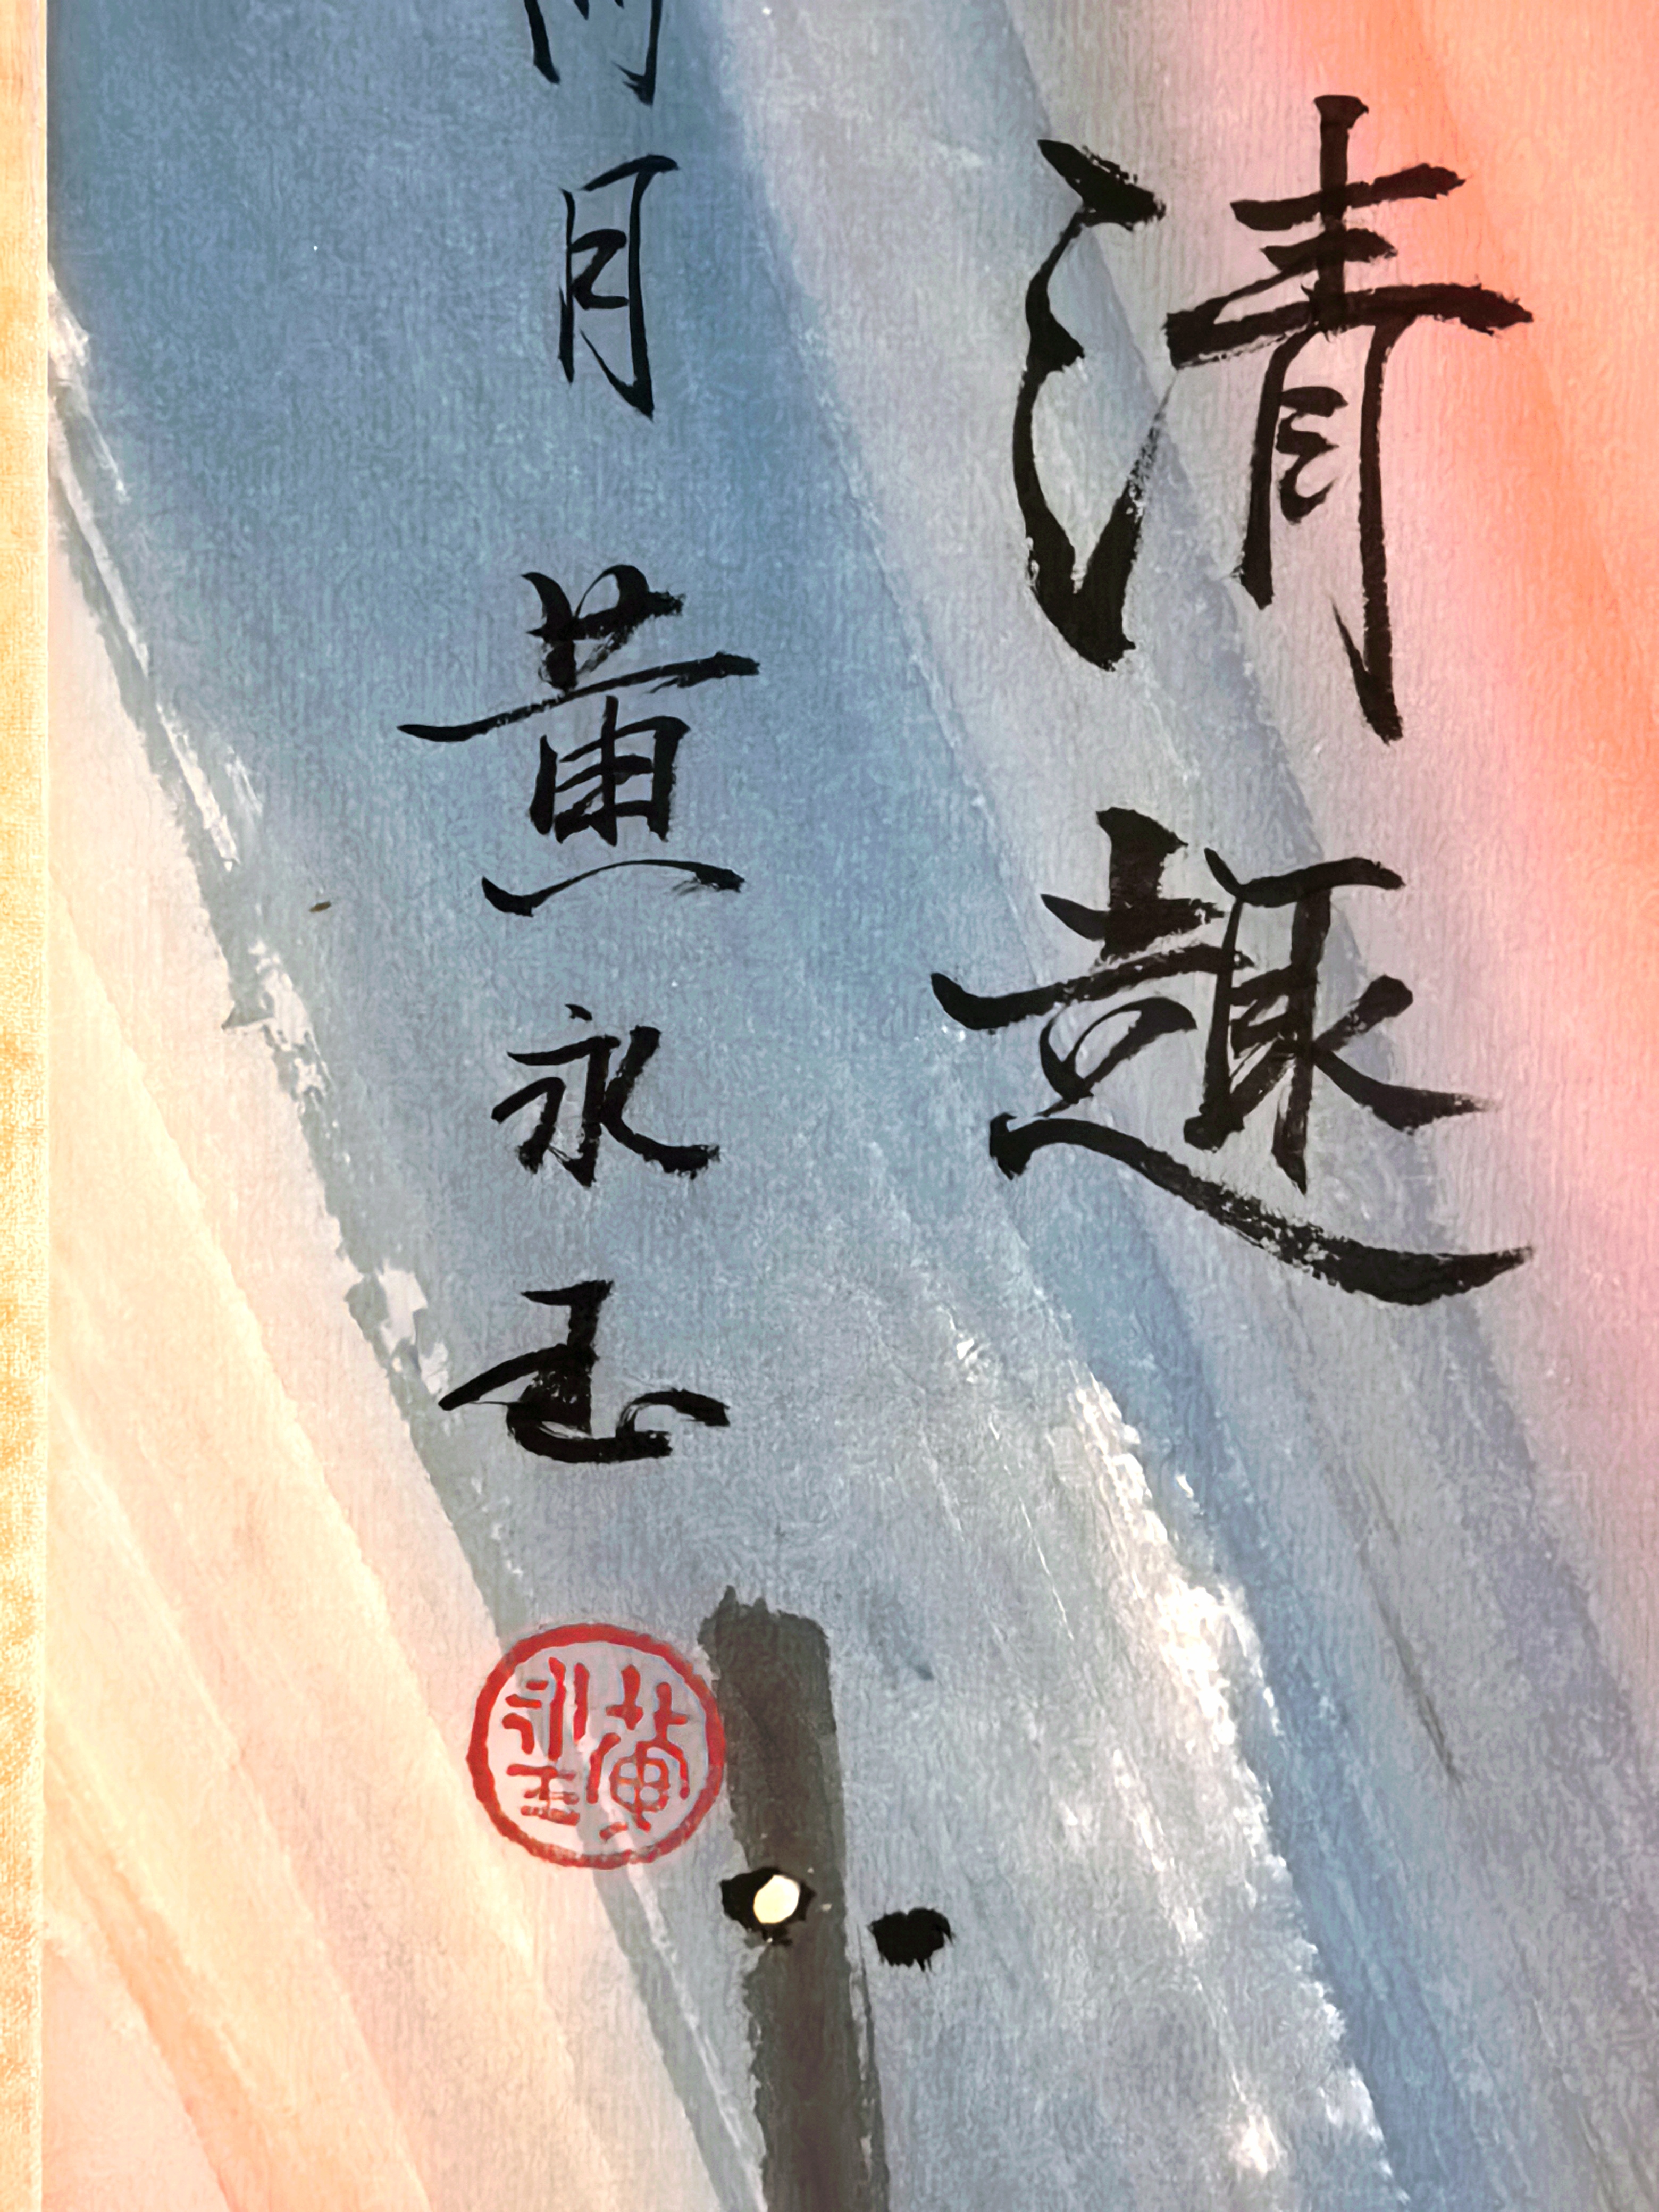 清趣
月黄永玉
黄永玉